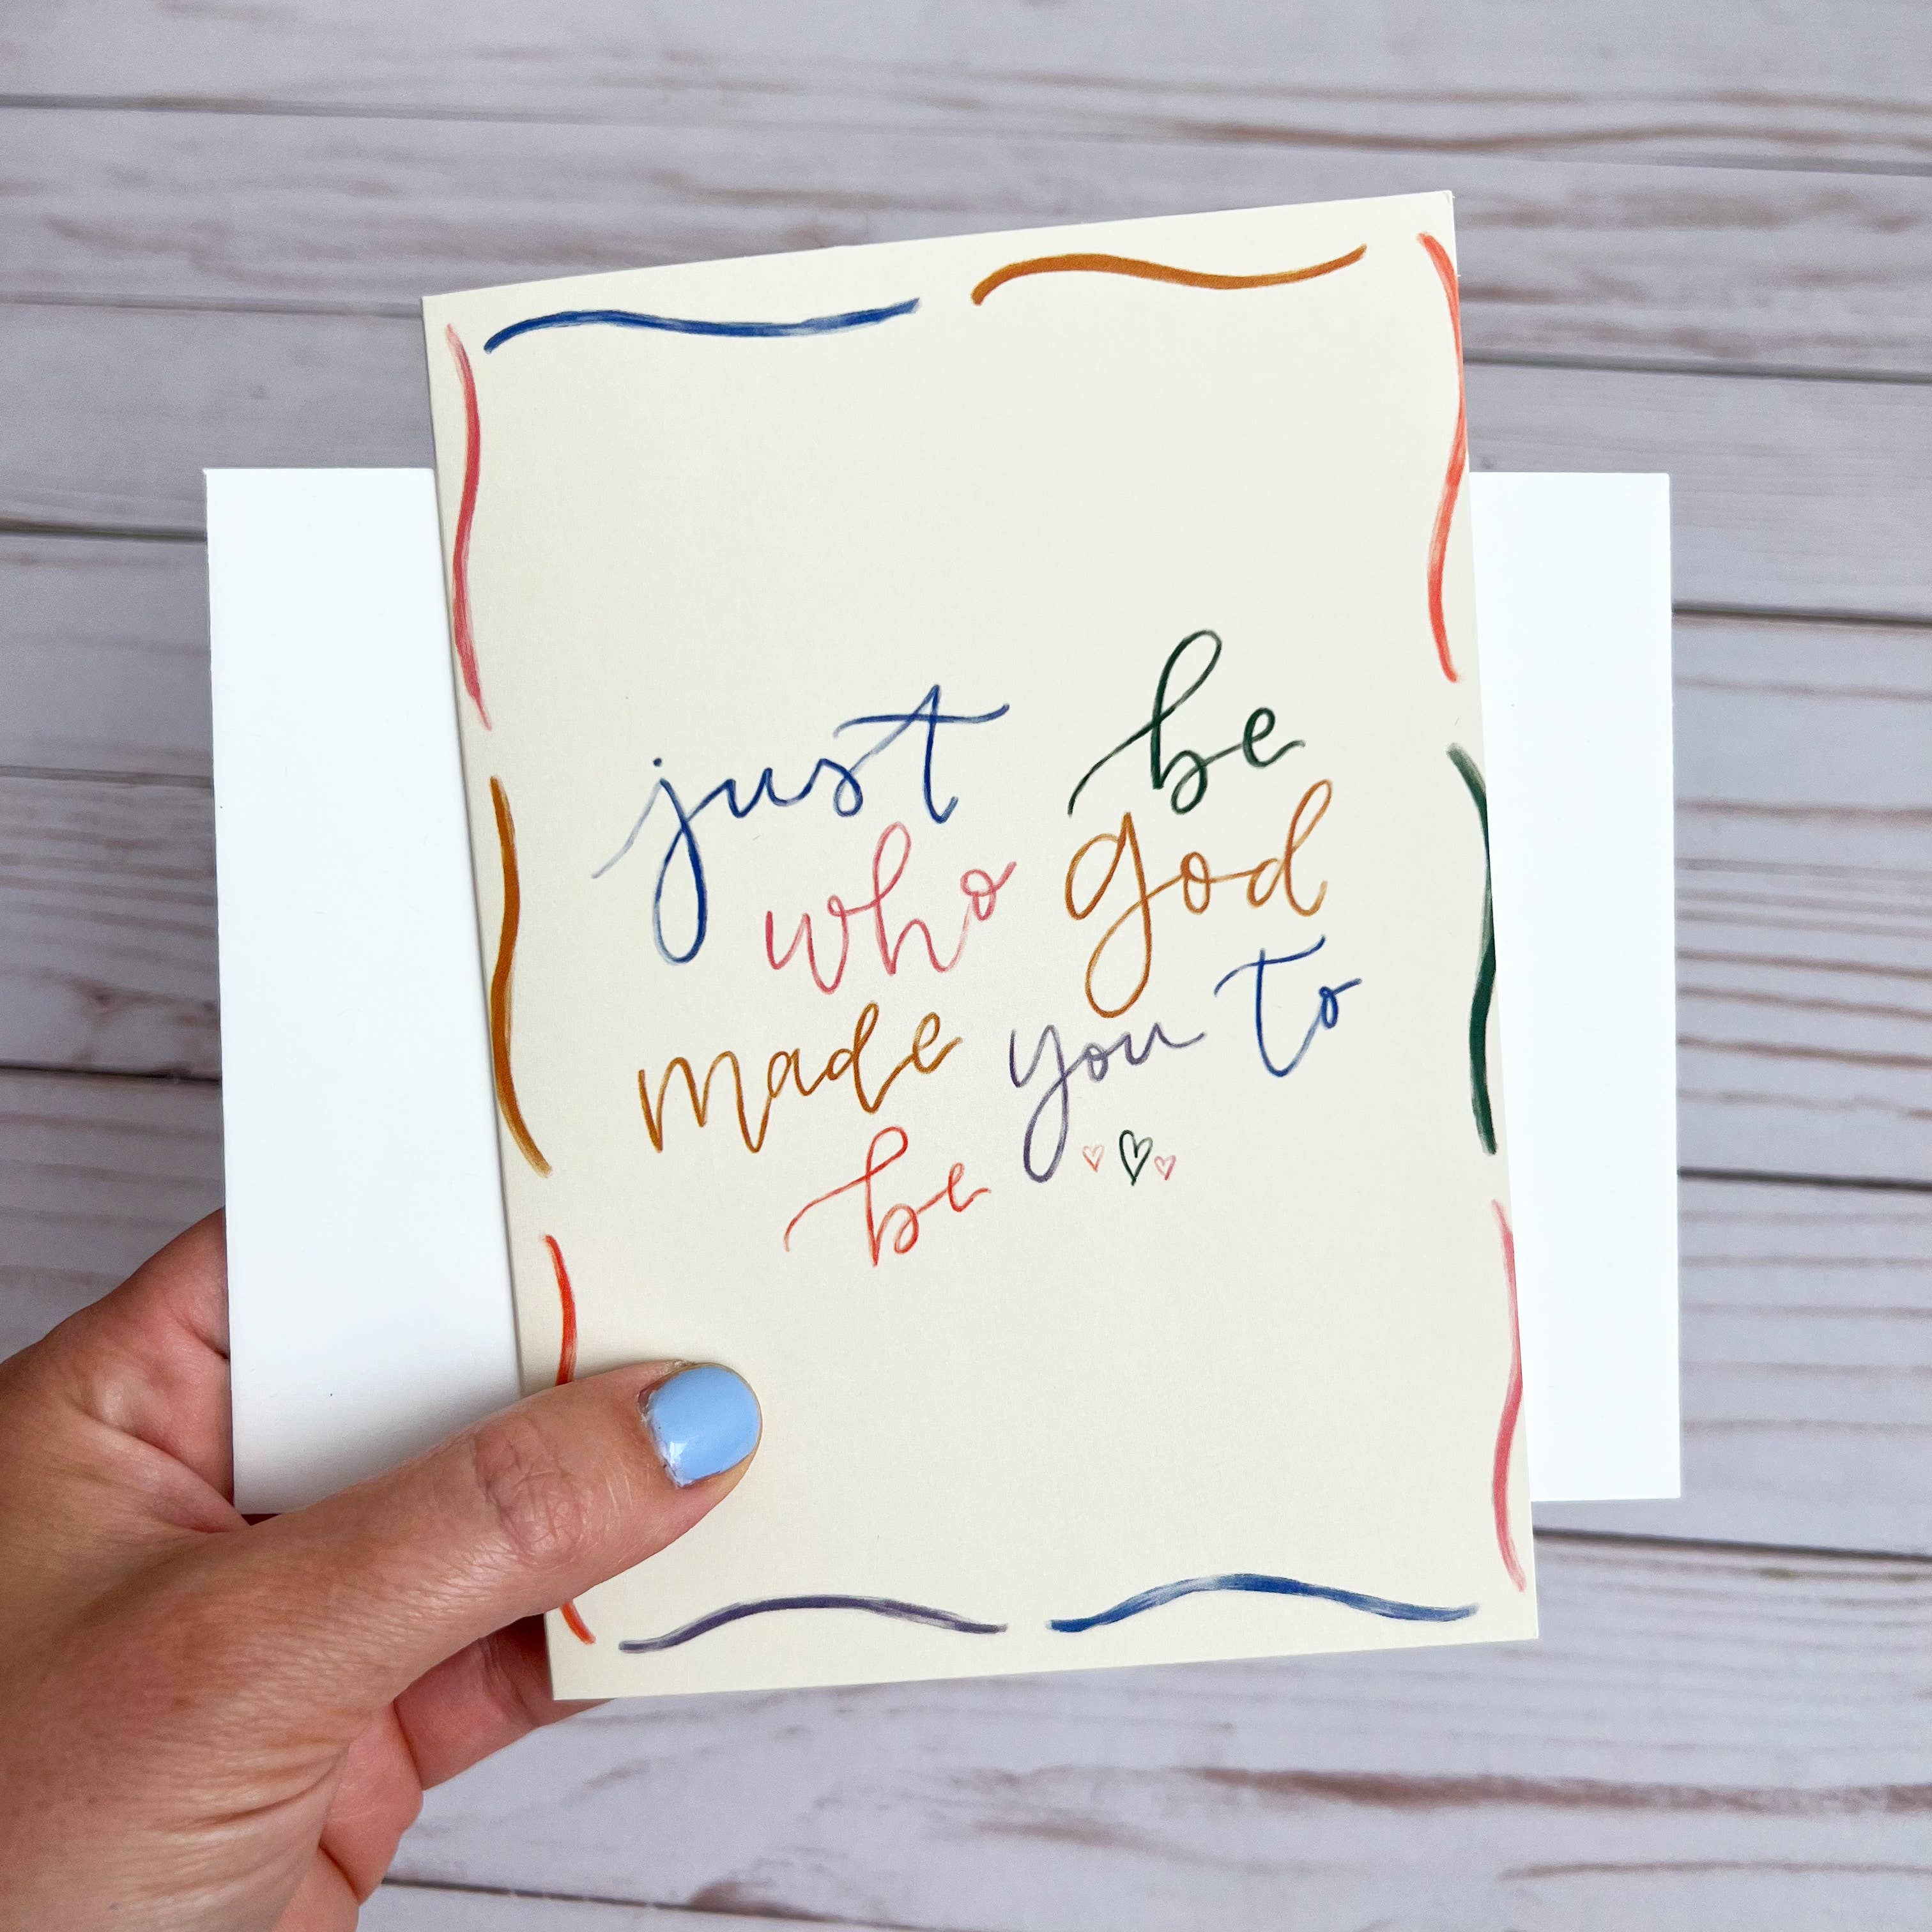 just be
who god
made you to
be